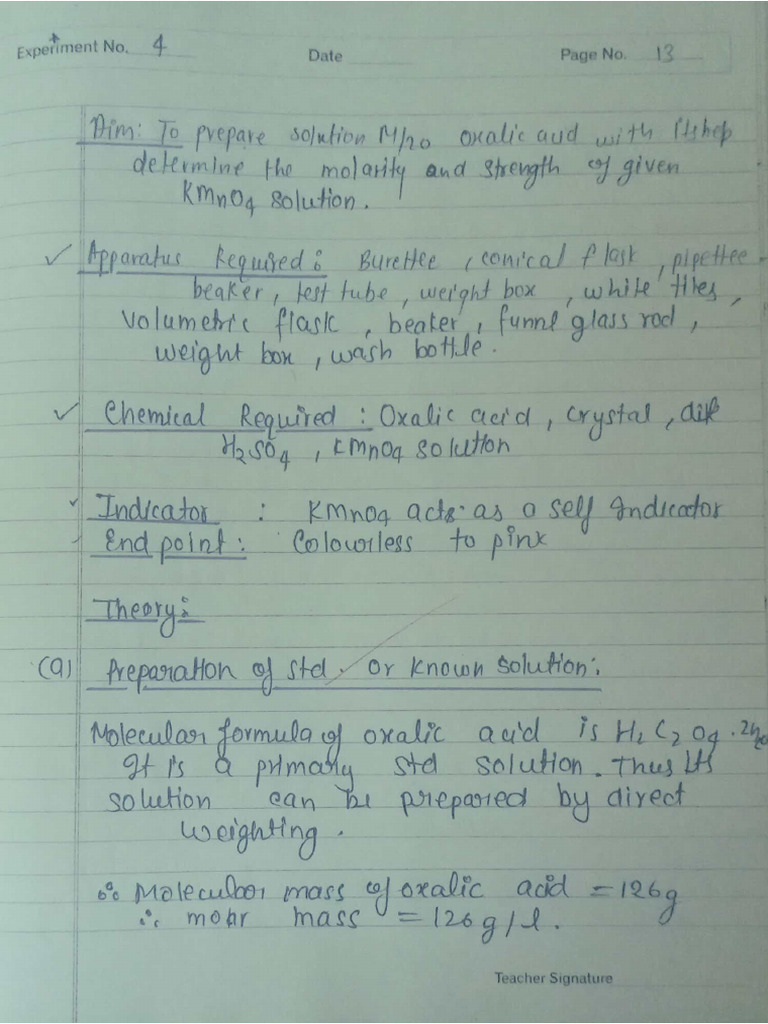 Experiment No. 4 Date Page No. 13
Aim: To prepare solution M/20 oxalic acid with its help
determine the molarity and strength of given
KMnO4 solution.
✓ Apparatus Required: Burettee, conical flask, pipettee
beaker, test tube, weight box, white tiles,
volumetric flask, beaker, funnl glass rod,
weight box, wash bottle.
✓ Chemical Required: Oxalic acid, crystal, dil
H2SO4, KMnO4 solution
Indicator : KMnO4 acts as a self Indicator
End point: Colourless to pink
Theory:
(a) Preparation of std. or known solution:
Molecular formula of oxalic acid is H2C2O4.2H2O
It is a primary std solution. Thus its
solution can be prepared by direct
weighting.
∵ Molecular mass of oxalic acid = 126g
∴ molar mass = 126g/l.
Teacher Signature